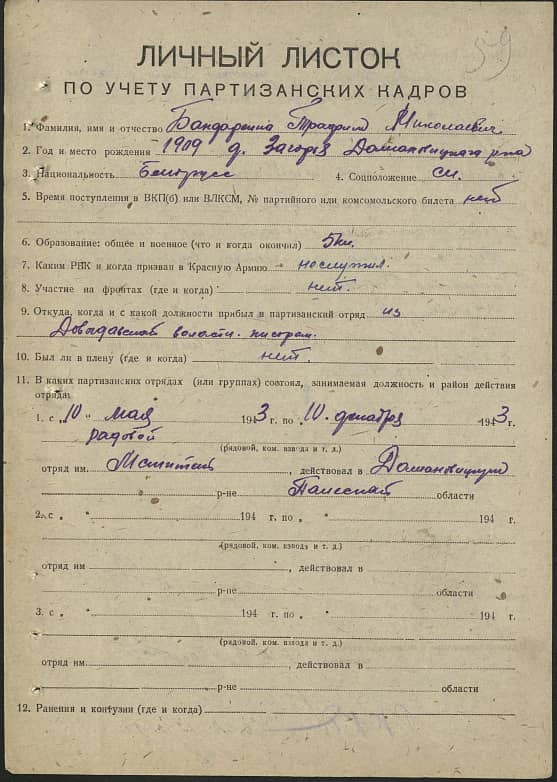 59
ЛИЧНЫЙ ЛИСТОК
ПО УЧЕТУ ПАРТИЗАНСКИХ КАДРОВ
1. Фамилия, имя и отчество Бандаренка Трафим Николаевич
2. Год и место рождения 1909 д. Загорье Даманавицкага р-на
3. Национальность Белорусс 4. Соцположение сл.
5. Время поступления в ВКП(б) или ВЛКСМ, № партийного или комсомольского билета нет
6. Образование: общее и военное (что и когда окончил) 5 кл.
7. Каким РВК и когда призван в Красную Армию неслужил.
8. Участие на фронтах (где и когда) нет.
9. Откуда, когда и с какой должности прибыл в партизанский отряд из
волости. писарем.
10. Был ли в плену (где и когда) нет.
11. В каких партизанских отрядах (или группах) состоял, занимаемая должность и район действия
отряда:
1. с „10" мая 1943 г. по 10 декабря 1943 г.
радовой
(рядовой, ком. взвода и т. д.)
отряд им. Мститель, действовал в
р-не Палеской области
2. с „ " 194 г. по „ " 194 г.
(рядовой, ком. взвода и т. д.)
отряд им , действовал в
р-не области
3. с „ " 194 г. по „ " 194 г.
(рядовой, ком. взвода и т. д.)
отряд им. , действовал в
р-не области
12. Ранения и контузии (где и когда)